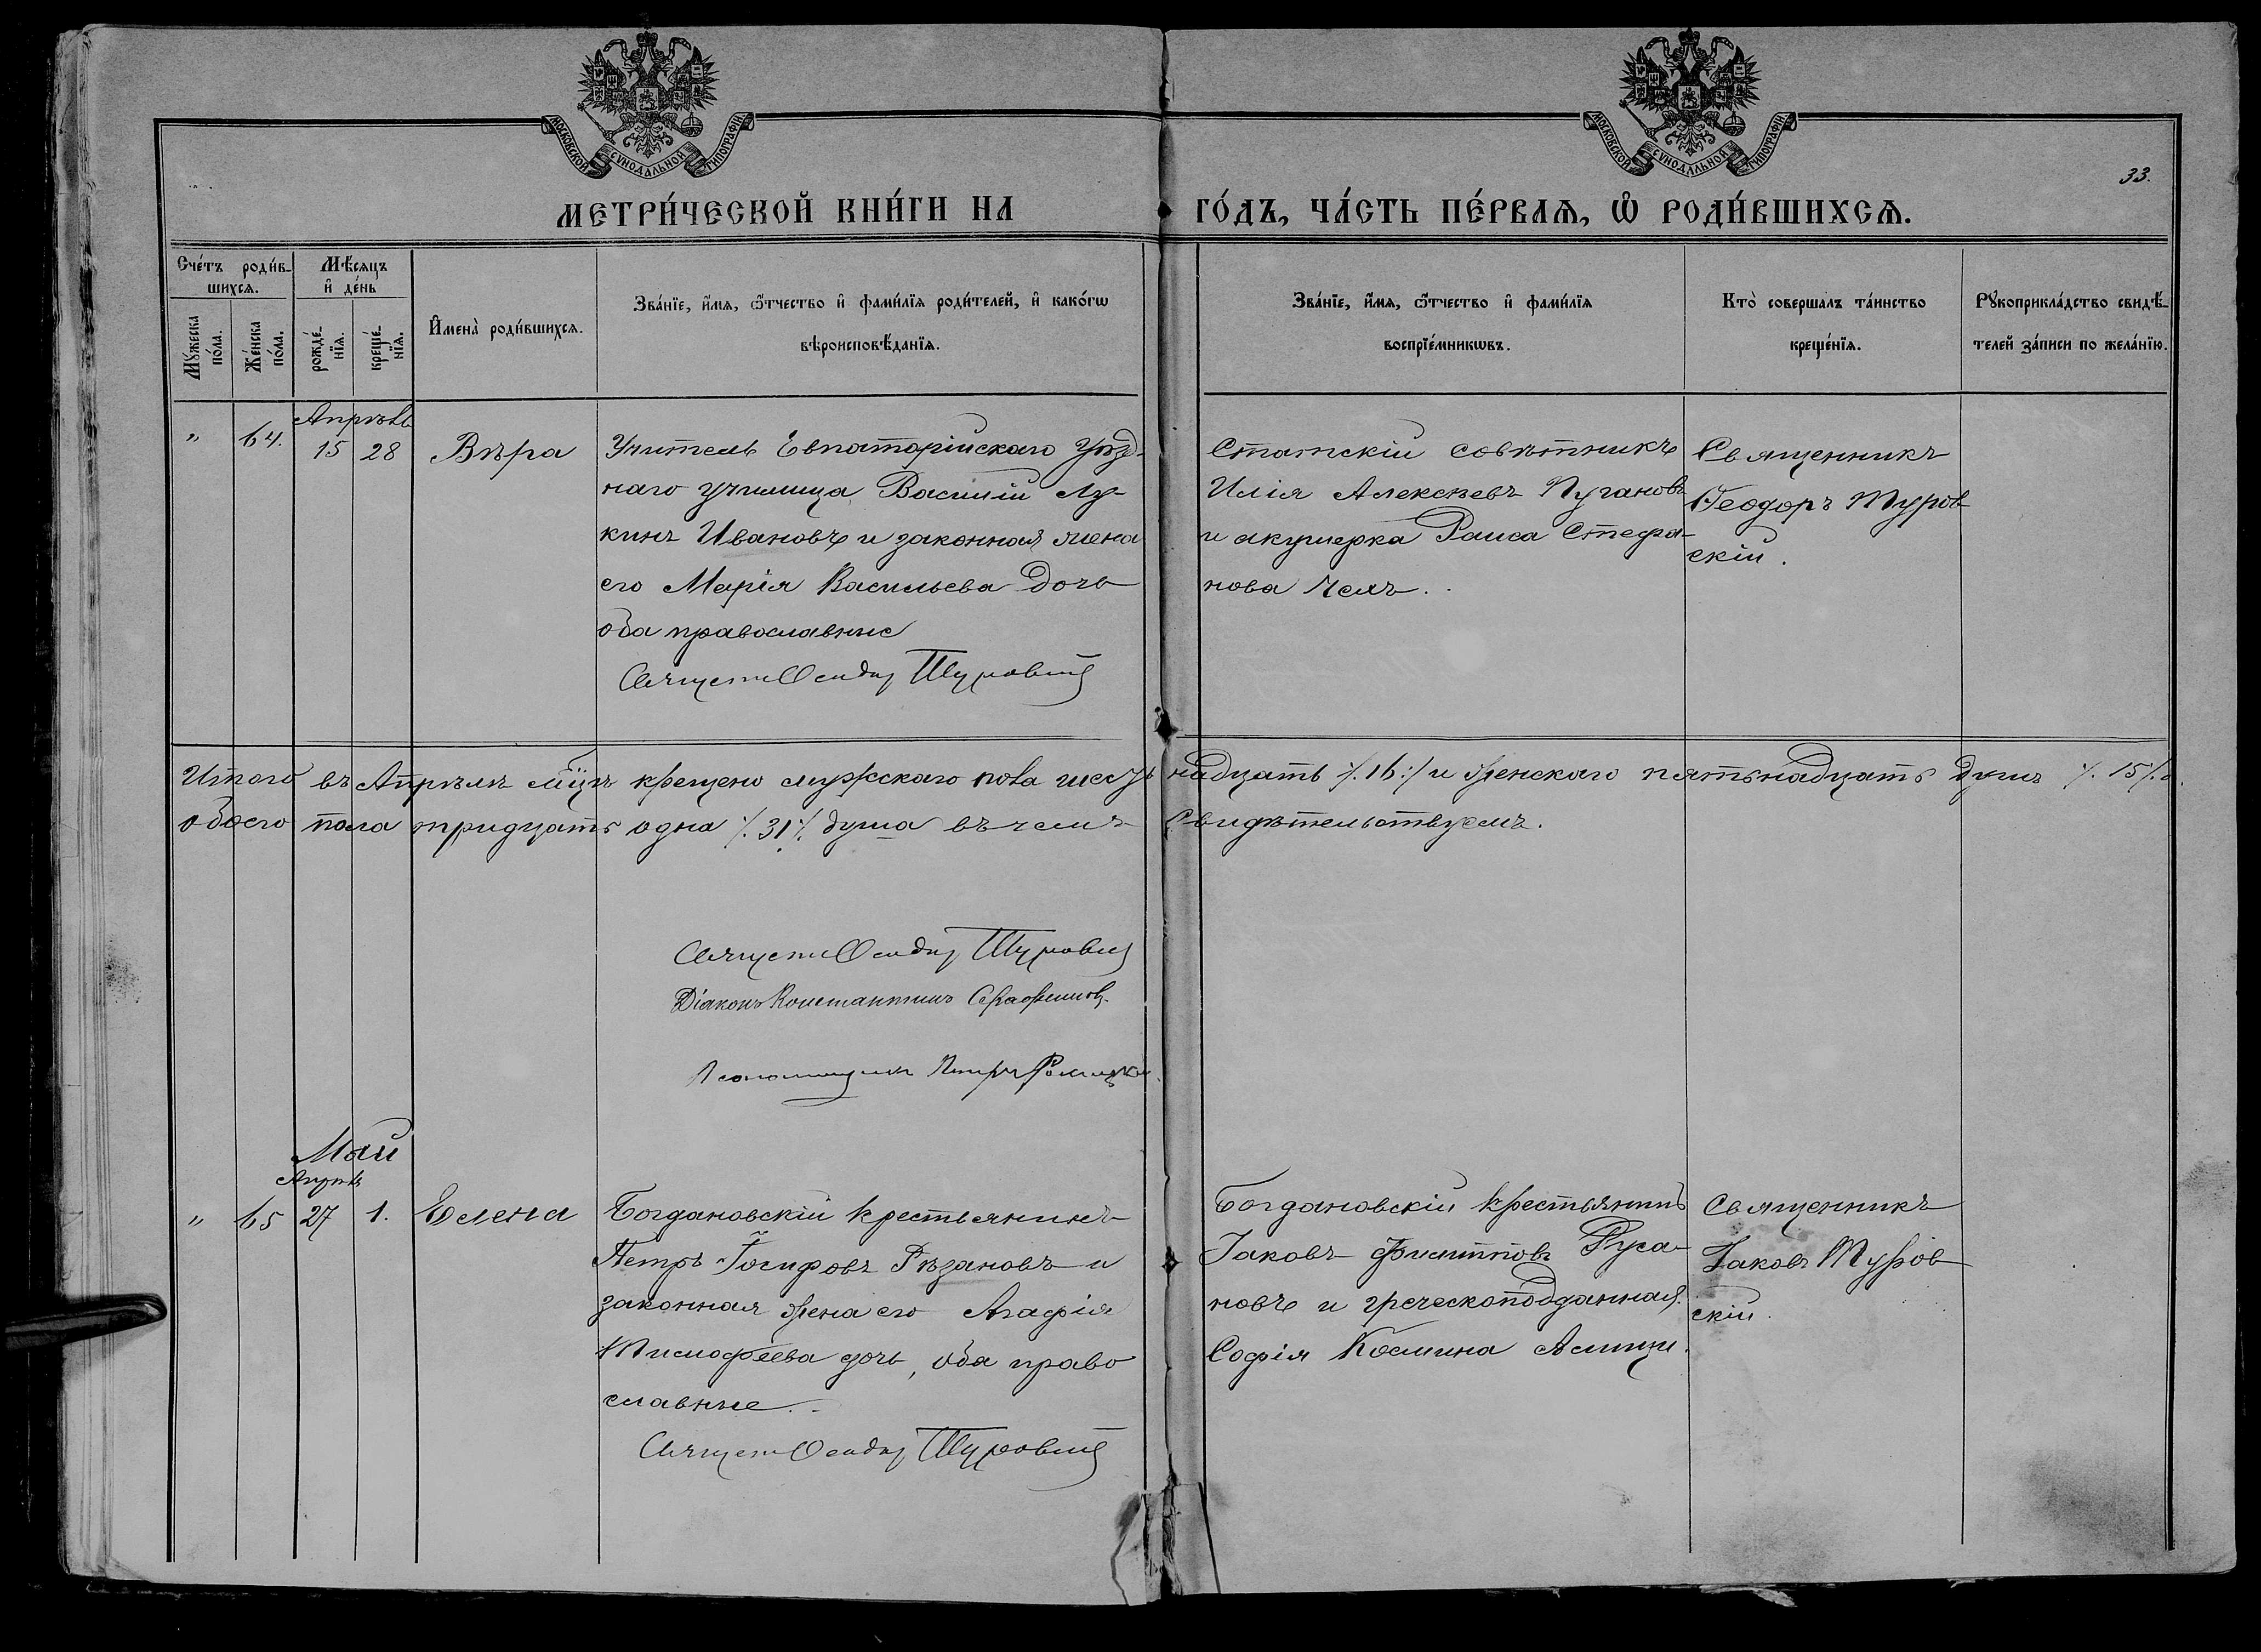 МОСКОВСКОЙ СѴНОДАЛЬНОЙ ТИПОГРАФІИ
МОСКОВСКОЙ СѴНОДАЛЬНОЙ ТИПОГРАФІИ
33.
МЕТРИ́ЧЕСКОЙ КНИ́ГИ НА ГО́ДЪ, ЧА́СТЬ ПЕ́РВАѦ, Ѡ҆ РОДИ́ВШИХСѦ.
Сче́тъ роди́в-
шихсѧ.
Мꙋ́жеска по́ла.
Же́нска по́ла.
Мѣ́сѧцъ
и҆ де́нь
рожде́-нїѧ.
креще́-нїѧ.
И҆мена̀ роди́вшихсѧ.
Зва́нїе, и҆́мѧ, ѻ҆́тчество и҆ фами́лїѧ роди́телей, и҆ како́гѡ
вѣроисповѣ́данїѧ.
Зва́нїе, и҆́мѧ, ѻ҆́тчество и҆ фами́лїѧ
воспрїе́мникѡвъ.
Кто̀ совершалъ та́инство
креще́нїѧ.
Рꙋкоприкла́дство свидѣ́-
телей за́писи по жела́нїю.
Апрѣль
" 64. 15 28 Вѣра
Учитель Евпаторійскаго Уѣзд-
наго училища Василій Лу-
кинъ Ивановъ и законная жена
его Марія Васильева дочь
оба православные
Статскій совѣтникъ
Илія Алексѣевъ Пугановъ
и акушерка Раиса Стефа-
нова Чехъ.
Священникъ
Ѳеодоръ Туров-
скій.
Туровскій
Итого въ Апрѣлѣ мцѣ крещено мужскаго пола шестьнадцать /.16:/ и женскаго пятьнадцать душъ /.15/.
обоего пола тридцать одна /.31/. душа въ чемъ свидѣтельствуемъ.
Туровскій
Діаконъ Константинъ
Псаломщикъ Петръ
Май
Апрѣль
" 65 27 1. Елена
Богдановскій крестьянинъ
Петръ Іосифовъ Рѣзановъ и
законная жена его Агафія
Тимофеева дочь, оба право
славные.
Богдановскій крестьянинъ
Іаковъ Филипповъ Руса-
новъ и греческоподданная
Софія Космина
Священникъ
Іаковъ Туров-
скій.
Туровскій